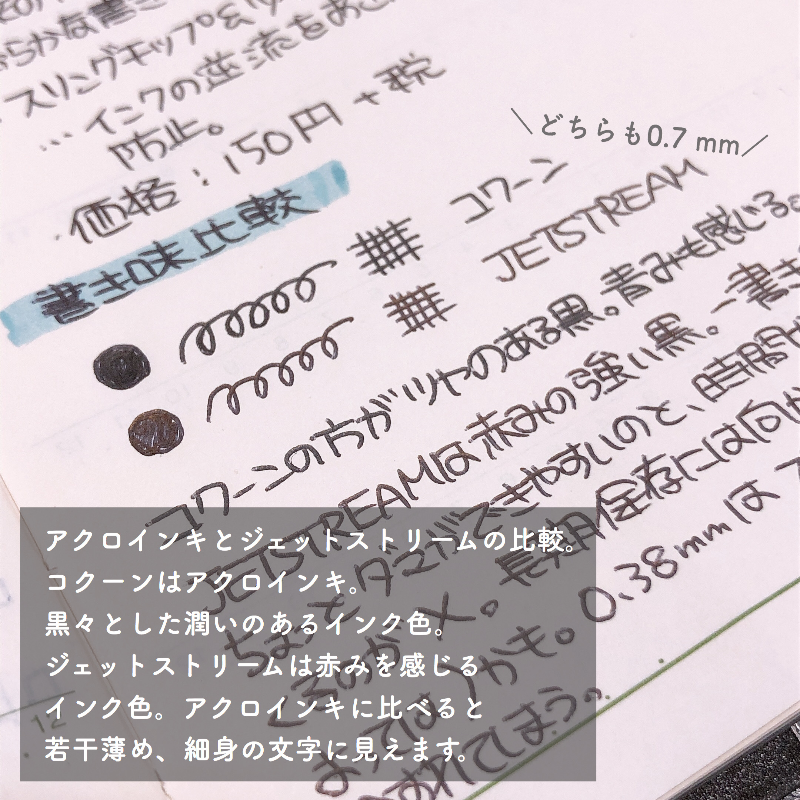 らかな書き
スリングチップ&
…インクの逆流をあ
防止。
・価格：150円+税
＼どちらも0.7 mm／
書き味比較
コクーン
JETSTREAM
コクーンの方がツヤのある黒。青みも感じる。
JETSTREAMは赤みの強い黒。一書き
ちょっとダマができやすいのと、時間が
くるのが×。長期保存には向か
かも。0.38mmは
れてしまう。
アクロインキとジェットストリームの比較。
コクーンはアクロインキ。
黒々とした潤いのあるインク色。
ジェットストリームは赤みを感じる
インク色。アクロインキに比べると
若干薄め、細身の文字に見えます。
12